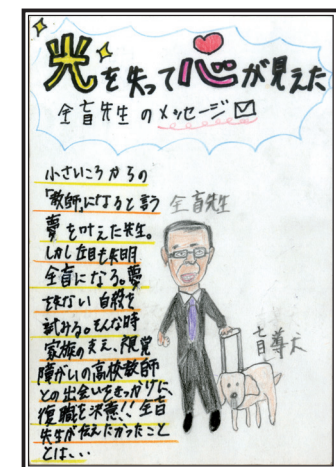 光を失って心が見えた
全盲先生のメッセージ
小さいころからの
「教師」になると言う
夢を叶えた先生。
しかし失明
全盲になる。夢
自殺を
試みる。そんな時
家族の支え、視覚
障がいの高校教師
との出会いをきっかけに
復職を決意!!全盲
先生が伝えたかったこと
とは、、、
全盲先生
盲導犬